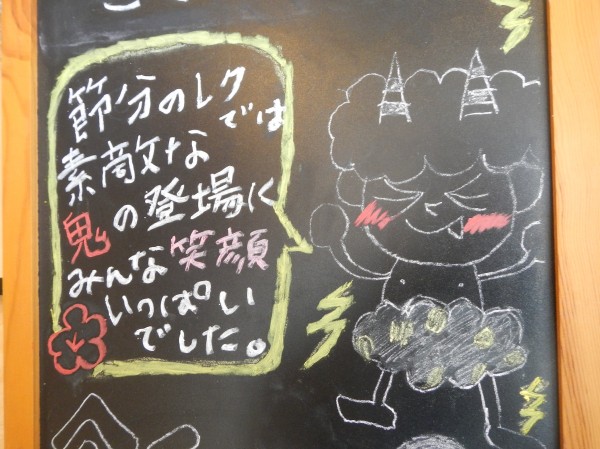 節分のレクでは
素敵な
鬼の登場に
みんな笑顔
いっぱい
でした。